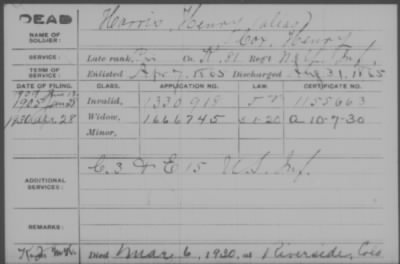 DEAD
NAME OF SOLDIER:
Harris, Henry (alias)
Cox, Henry
SERVICE:
Late rank, Pvt Co. K, Reg't Inf.
TERM OF SERVICE:
Enlisted Apr 7, 1865 Discharged Aug 31, 1865
DATE OF FILING. CLASS. APPLICATION NO. LAW. CERTIFICATE NO.
1905 Jan 28 Invalid, 1330918 1155663
28 Widow, 1666745 5-1-20 A 10-7-30
Minor,
ADDITIONAL SERVICES:
C. 3 & E 15 U.S. Inf.
REMARKS:
Died Mar 6, 1930, at Riverside, Colo